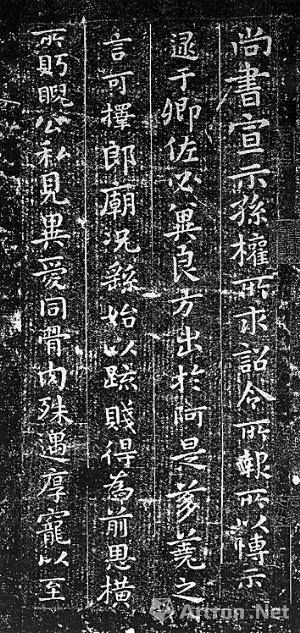 尚書宣示孫權所求詔令所報所以博示
逮于卿佐必冀良方出於阿是芻蕘之
言可擇郎廟況繇始以疏賤得為前恩橫
所眄睨公私見異愛同骨肉殊遇厚寵以至
Artron.Net